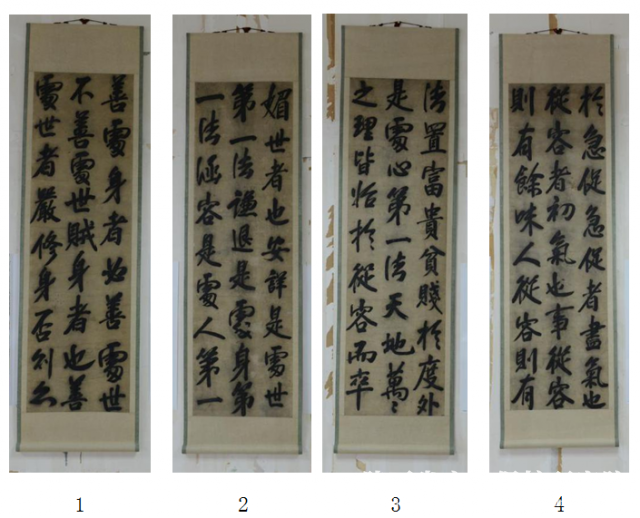 善處身者必善處世
不善處世賊身者也善
處世者嚴修身否則為
媚世者也安詳是處世
第一法謙退是處身第
一法涵容是處人第一
法置富貴貧賤於度外
是處心第一法天地萬〻
之理皆始於從容而卒
於急促急促者盡氣也
從容者初氣也事從容
則有餘味人從容則有
1
2
3
4